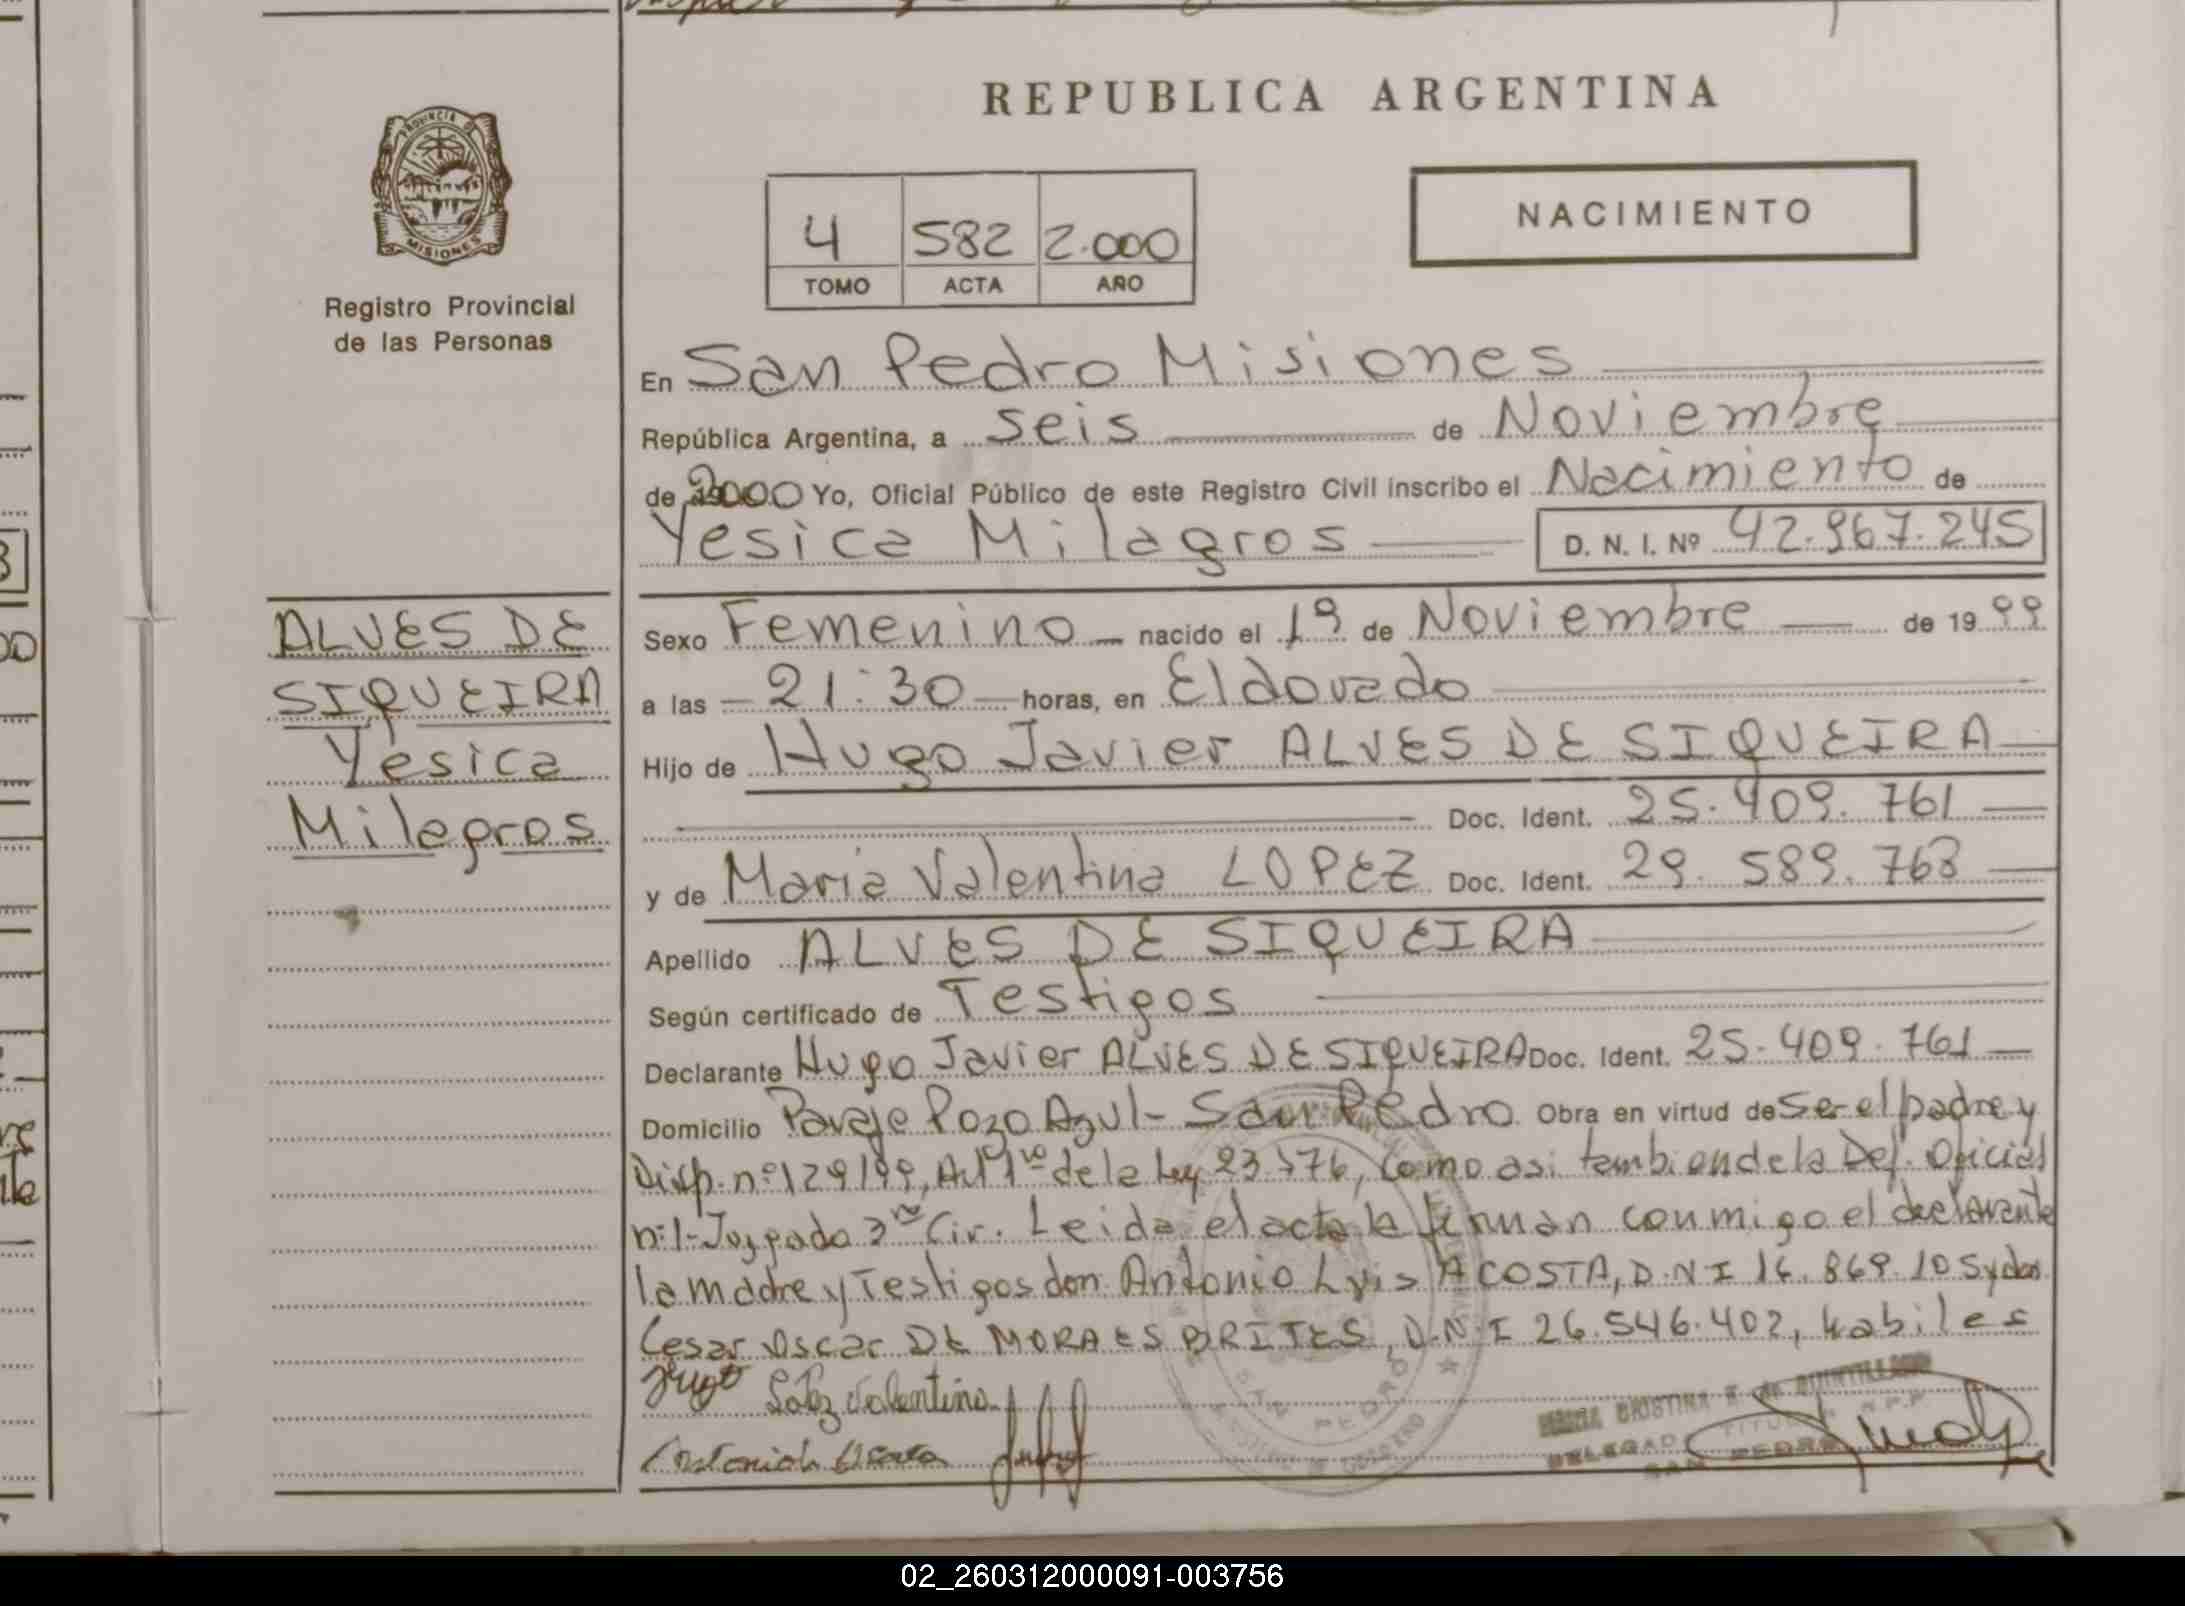 REPUBLICA ARGENTINA
PROVINCIA DE
MISIONES
Registro Provincial
de las Personas
4 582 2.000
TOMO ACTA AÑO
NACIMIENTO
En San Pedro Misiones
República Argentina, a seis de Noviembre
de 2000 Yo, Oficial Público de este Registro Civil inscribo el Nacimiento de
Yesica Milagros D. N. I. Nº 42.967.245
ALVES DE
SIQUEIRA
Yesica
Milagros
Sexo Femenino nacido el 19 de Noviembre de 1999
a las 21:30 horas, en Eldorado
Hijo de Hugo Javier ALVES DE SIQUEIRA
Doc. Ident. 25.409.761
y de Maria Valentina LOPEZ Doc. Ident. 29.589.763
Apellido ALVES DE SIQUEIRA
Según certificado de Testigos
Declarante Hugo Javier ALVES DE SIQUEIRA Doc. Ident. 25.409.761
Domicilio Paraje Pozo Azul - San Pedro. Obra en virtud de Ser el padre y
Disp. nº 129/99, Art 1ro de la Ley 23.776, como asi tambien de la Def. Oficial
nº 1-Juzgado 3ra Cir. Leida el acta la firman conmigo el declarante
la madre y Testigos don Antonio Luis ACOSTA, D.N.I 16.869.105 y don
Cesar Oscar DE MORAES BRITES, D.N.I 26.546.402, habiles
Hugo Lopez Valentina
SAN PEDRO
02_260312000091-003756